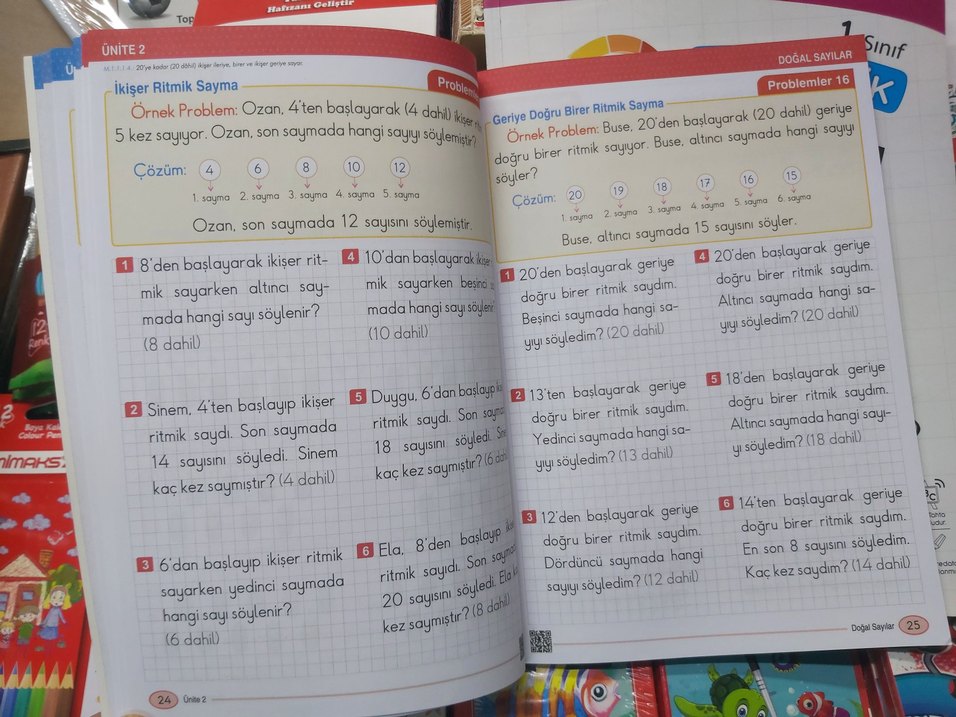 Hafızanı Geliştir
ÜNİTE 2
M.1.1.1.4. 20'ye kadar (20 dâhil) ikişer ileriye, birer ve ikişer geriye sayar.
İkişer Ritmik Sayma
Örnek Problem: Ozan, 4'ten başlayarak (4 dahil) ikişer
5 kez sayıyor. Ozan, son saymada hangi sayıyı söylemiştir?
Çözüm: 4 6 8 10 12
1. sayma 2. sayma 3. sayma 4. sayma 5. sayma
Ozan, son saymada 12 sayısını söylemiştir.
1 8'den başlayarak ikişer rit-
mik sayarken altıncı say-
mada hangi sayı söylenir?
(8 dahil)
2 Sinem, 4'ten başlayıp ikişer
ritmik saydı. Son saymada
14 sayısını söyledi. Sinem
kaç kez saymıştır? (4 dahil)
3 6'dan başlayıp ikişer ritmik
sayarken yedinci saymada
hangi sayı söylenir?
(6 dahil)
4 10'dan başlayarak ikişer
mik sayarken beşinci
mada hangi sayı söylenir
(10 dahil)
5 Duygu, 6'dan başlayıp
ritmik saydı. Son
18 sayısını söyledi.
kaç kez saymıştır? (6
6 Ela, 8'den başlayıp
ritmik sayıdı. Son
20 sayısını söyledi. Ela
kez saymıştır? (8 dahil)
24 Ünite 2
DOĞAL SAYILAR
Problemler 16
Geriye Doğru Birer Ritmik Sayma
Örnek Problem: Buse, 20'den başlayarak (20 dahil) geriye
doğru birer ritmik sayıyor. Buse, altıncı saymada hangi sayıyı
söyler?
Çözüm: 20 19 18 17 16 15
1. sayma 2. sayma 3. sayma 4. sayma 5. sayma 6. sayma
Buse, altıncı saymada 15 sayısını söyler.
1 20'den başlayarak geriye
doğru birer ritmik saydım.
Beşinci saymada hangi sa-
yıyı söyledim? (20 dahil)
2 13'ten başlayarak geriye
doğru birer ritmik saydım.
Yedinci saymada hangi sa-
yıyı söyledim? (13 dahil)
3 12'den başlayarak geriye
doğru birer ritmik saydım.
Dördüncü saymada hangi
sayıyı söyledim? (12 dahil)
4 20'den başlayarak geriye
doğru birer ritmik saydım.
Altıncı saymada hangi sa-
yıyı söyledim? (20 dahil)
5 18'den başlayarak geriye
doğru birer ritmik saydım.
Altıncı saymada hangi sayı-
yı söyledim? (18 dahil)
6 14'ten başlayarak geriye
doğru birer ritmik saydım.
En son 8 sayısını söyledim.
Kaç kez saydım? (14 dahil)
Doğal Sayılar 25
1. Sınıf